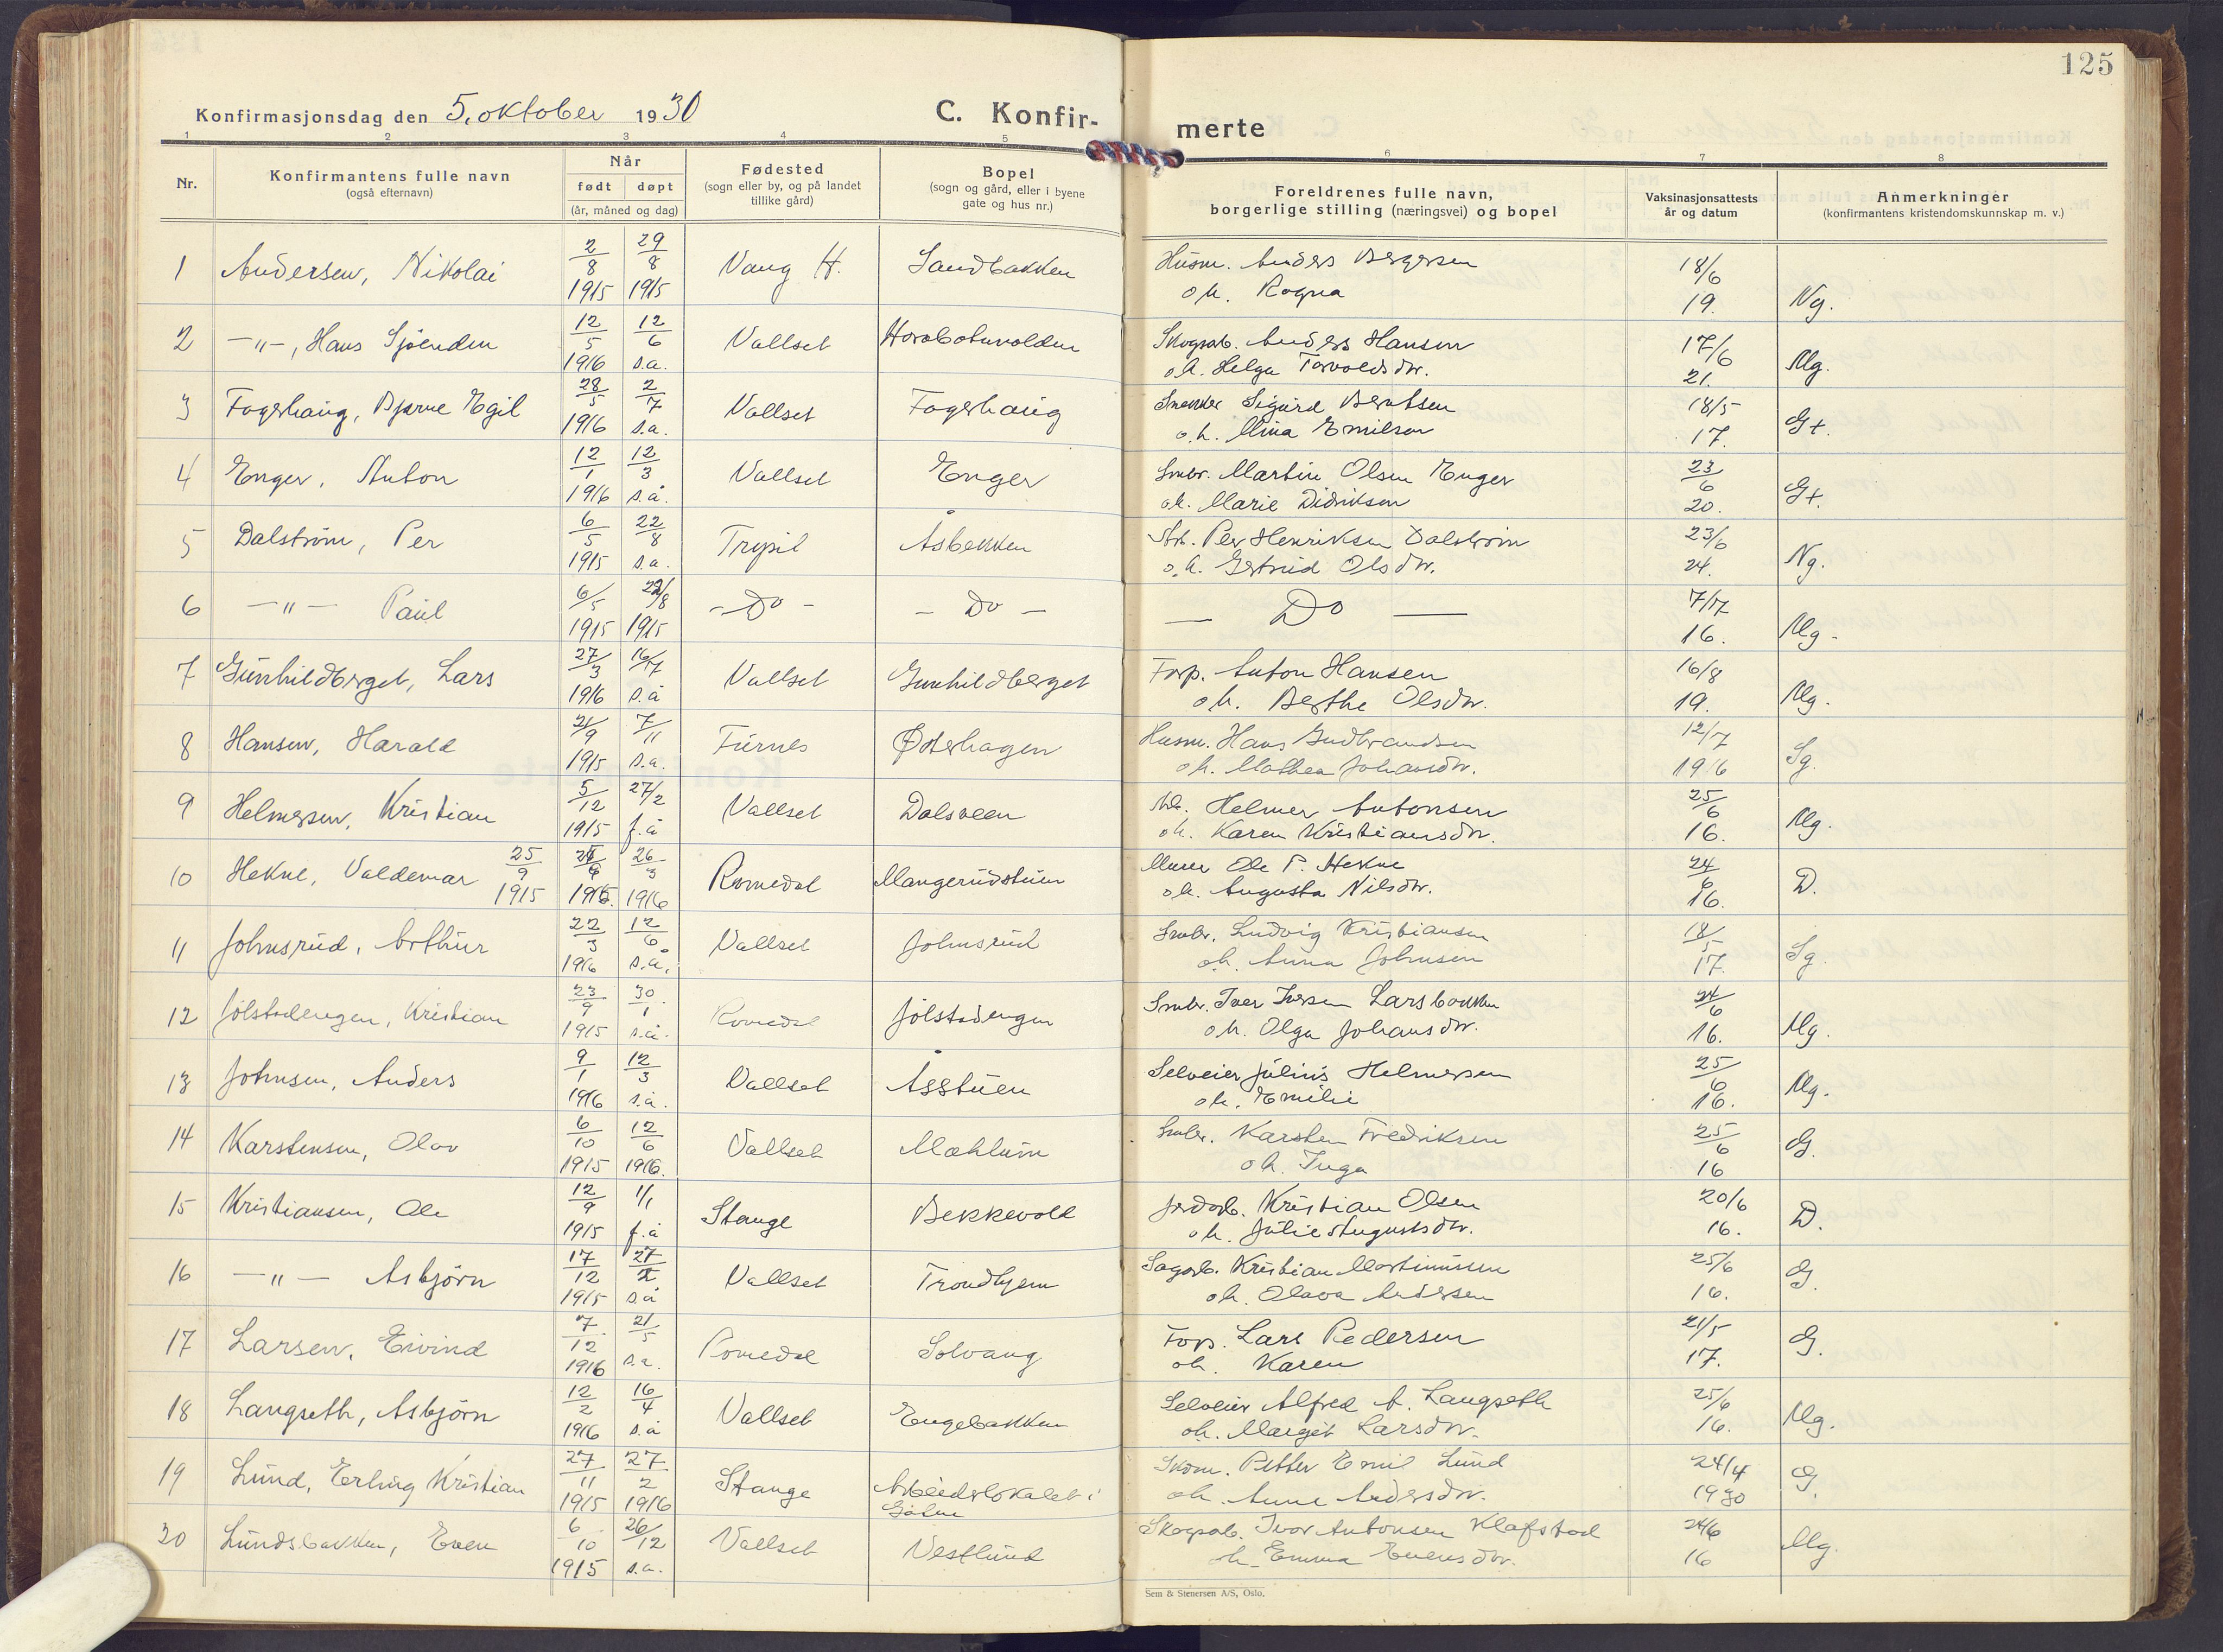 125
Konfirmasjonsdag den 5. oktober 1930
C. Konfir-
merte
1 2 3 4 5 6 7 8
Nr.
Konfirmantens fulle navn
(også efternavn)
Når
født døpt
(år, måned og dag)
Fødested
(sogn eller by, og på landet
tillike gård)
Bopel
(sogn og gård, eller i byene
gate og hus nr.)
Foreldrenes fulle navn,
borgerlige stilling (næringsvei) og bopel
Vaksinasjonsattests
år og datum
Anmerkninger
(konfirmantens kristendomskunnskap m. v.)
1 Andersen, Nikolai 2/8 1915 29/8 1915 Vang H. Sandbakken Husm. Anders Bergersen 18/6
o h. Rogna 19. Ng.
2 —"—, Hans Sjøenden 12/5 1916 12/6 s.a. Vallset Skogsarb. Anders Hansen 17/6
o.h. Helga Torvaldsdtr. 21. Mg.
3 Fagerhaug, Bjarne Egil 28/5 1916 2/7 s.a. Vallset Fagerhaug Snekker Sigurd Berntsen 18/5
o.h. Mina Emilsen 17. G+.
4 Enger, Anton 12/1 1916 12/3 s.å. Vallset Enger Smbr. Martin Olsen Enger 23/6
o.h. Marie Didriksen 20. G+.
5 Dalstrøm, Per 6/5 1915 22/8 s.a. Trysil Åsbekken Arb. Per Henriksen Dalstrøm 23/6
o.h. Gertrud Olsdtr. 24. Ng.
6 —"— Paul 6/5 1915 22/8 1915 —Do— —Do— — Do — 7/17
16. Mg.
7 Gunhildberget, Lars 27/3 1916 16/7 s.å Vallset Gunhildberget Forp. Anton Hansen 16/8
o h. Berthe Olsdtr. 19. Mg.
8 Hansen, Harald 21/9 1915 7/11 s.a. Furnes Østerhagen Husm. Hans Gudbrandsen 12/7
o h. Mathea Johansdtr. 1916 Sg.
9 Helmersen, Kristian 5/12 1915 27/2 f.å Vallset Dalsveen Arb. Helmer Antonsen 25/6
o h. Karen Kristiansdtr. 16. Mg.
10 Hekne, Valdemar 25/9 1915 26/3 1916 Romedal Mangerudstuen Murer Ole P. Hekne 24/6
o h. Augusta Nilsdtr. 16. D.
11 Johnsrud, Arthur 22/3 1916 12/6 s.å. Vallset Johnsrud Smbr. Ludvig Kristiansen 18/5
o h. Anna Johnsen 17. Sg.
12 Jølstadengen, Kristian 23/9 1915 30/1 s.å. Romedal Jølstadengen Smbr. Iver Iversen Larsbakken 24/6
o h. Olga Johansdtr. 16. Mg.
13 Johnsen, Anders 9/1 1916 12/3 s.å. Vallset Åsstuen Selveier Julius Helmersen 25/6
o h. Emilie 16. Mg.
14 Karstensen, Olav 6/10 1915 12/6 1916. Vallset Mæhlum Smbr. Karsten Fredriksen 25/6
o h. Inga 16 G.
15 Kristiansen, Ole 12/9 1915 1/1 f.å Stange Bekkevold Jordarb. Kristian Olsen 20/6
o h. Julie Augustsdtr. 16. D.
16 —"— Asbjørn 17/12 1915 27/2 s.å Vallset Trondhjem Sagarb. Kristian Martinussen 25/6
o h. Olava Andersen 16. G.
17 Larsen, Eivind 7/12 1916 21/5 s.a. Romedal Solvang Forp. Lars Pedersen 21/5
o h. Karen 17. G.
18 Langseth, Asbjørn 12/2 1916 16/4 s.å Vallset Engebakken Selveier Alfred A. Langseth 25/6
o h. Margit Larsdtr. 16. Mg.
19 Lund, Erling Kristian 27/11 1915 27/2 1916 Stange Arbeiderlokalet i Skom. Petter Emil Lund 24/4
o h. Anne Andersdtr. 1930 G.
20 Lundsbakken, Even 6/10 1915 26/12 s.a. Vallset Vestlund Skogsarb. Ivar Antonsen Klafstad 24/6
o h. Emma Evensdtr. 16 Mg.
Sem & Stenersen A/S, Oslo.